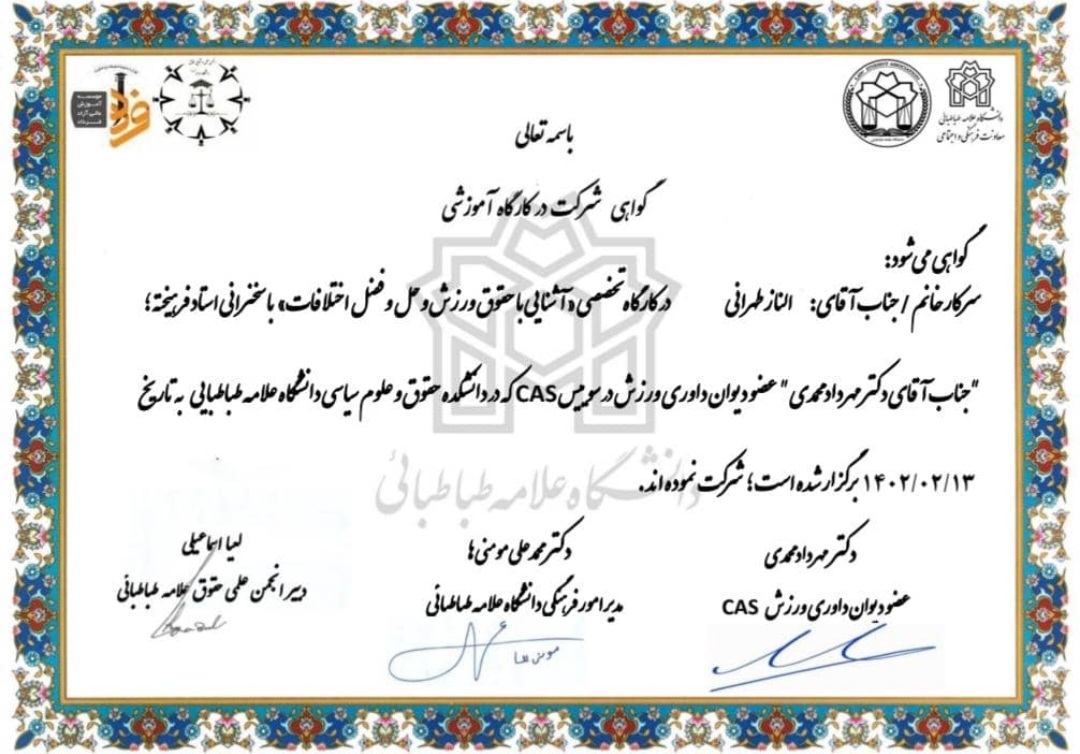 موسسه
آموزش
عالی آزاد
فرداد
فرداد
LAW STUDENT ASSOCIATION
دانشگاه علامه طباطبائی
معاونت فرهنگی و اجتماعی
باسمه تعالی
گواهی شرکت در کارگاه آموزشی
گواهی می شود:
سرکار خانم / جناب آقای: الناز طهرانی در کارگاه تخصصی «آشنایی با حقوق ورزش و حل و فصل اختلافات» با سخنرانی استاد فرهیخته؛
"جناب آقای دکتر مهرداد محمدی" عضو دیوان داوری ورزش در سوییس CAS که در دانشکده حقوق و علوم سیاسی دانشگاه علامه طباطبایی به تاریخ
۱۴۰۲/۰۲/۱۳ برگزار شده است؛ شرکت نموده اند.
دانشگاه علامه طباطبائی
دکتر مهرداد محمدی
عضو دیوان داوری ورزش CAS
دکتر محمد علی مومنی ها
مدیر امور فرهنگی دانشگاه علامه طباطبائی
مومنی ها
لعیا اسماعیلی
دبیر انجمن علمی حقوق علامه طباطبائی